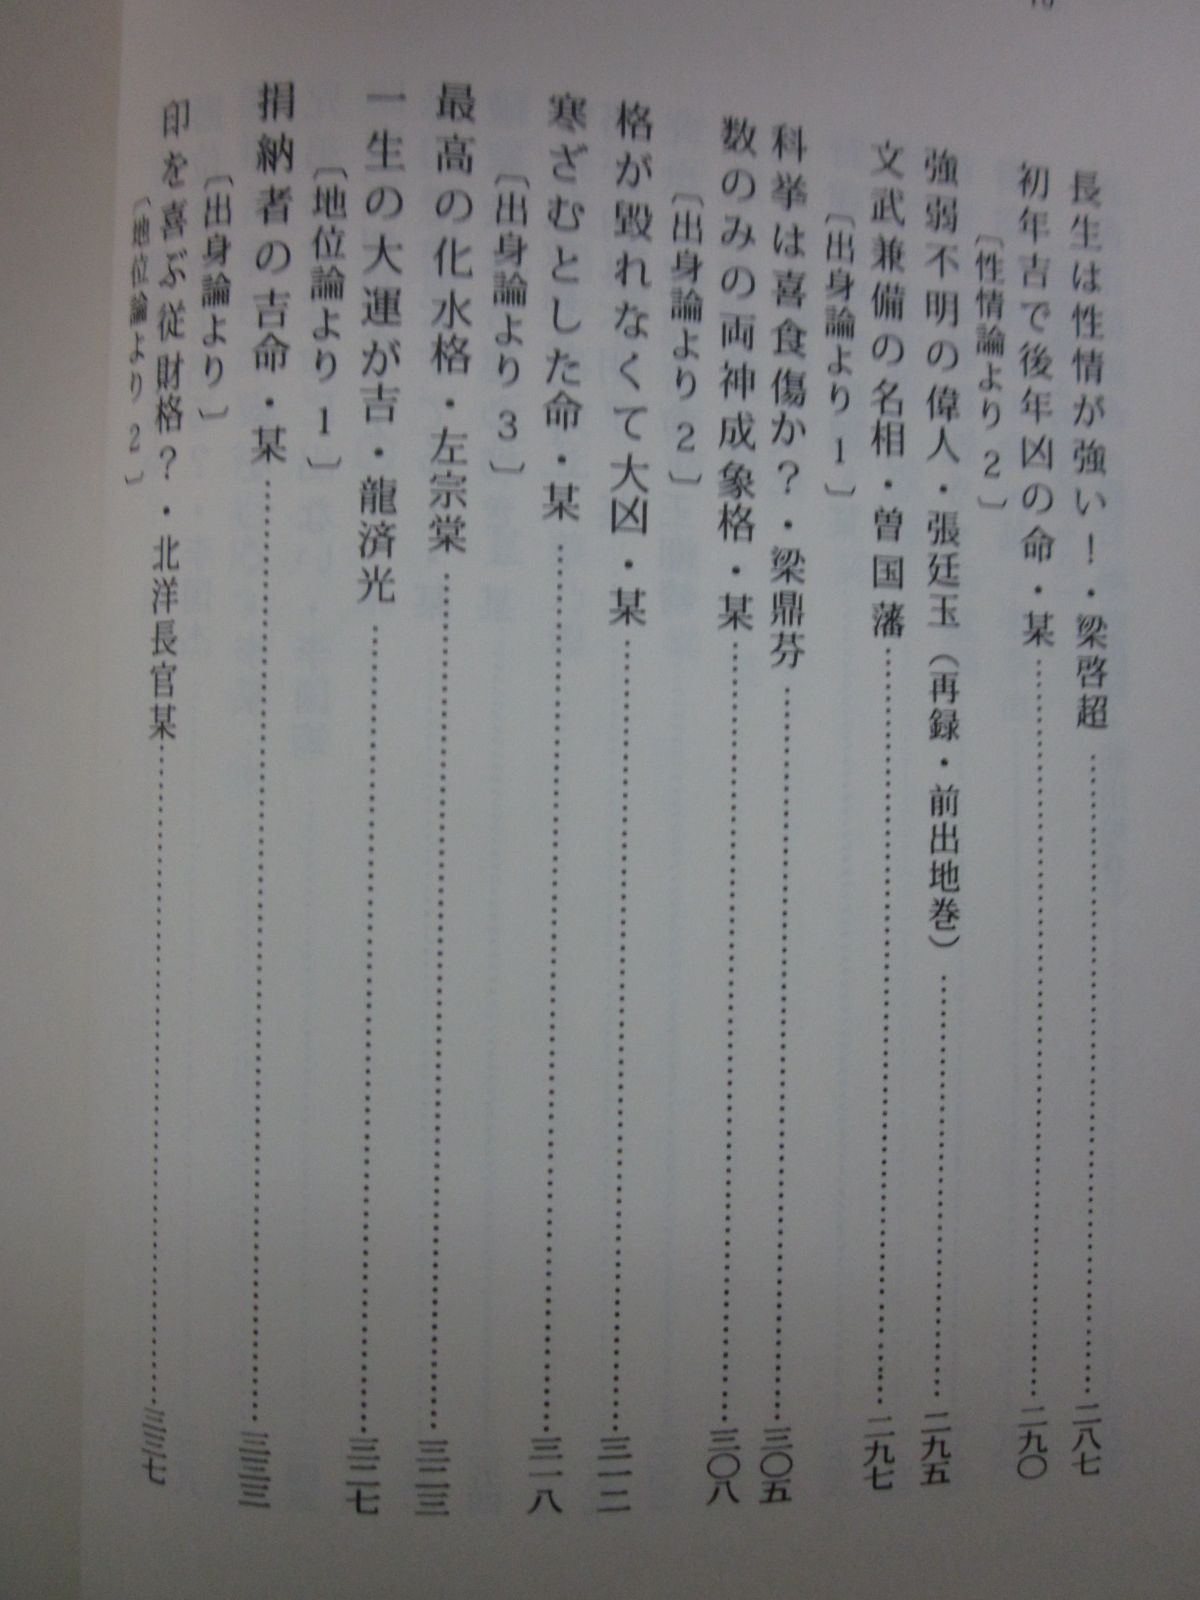 長生は性情が強い！・梁啓超……二八七
初年吉で後年凶の命・某……二九〇
〔性情論より2〕
強弱不明の偉人・張廷玉（再録・前出地巻）……二九五
文武兼備の名相・曽国藩……二九七
〔出身論より1〕
科挙は喜食傷か？・梁鼎芬……三〇五
数のみの両神成象格・某……三〇八
〔出身論より2〕
格が毀れなくて大凶・某……三一二
寒ざむとした命・某……三一八
〔出身論より3〕
最高の化水格・左宗棠……三二三
一生の大運が吉・龍済光……三二七
〔地位論より1〕
捐納者の吉命・某……三三三
〔出身論より〕
印を喜ぶ従財格？・北洋長官某……三三七
〔地位論より2〕